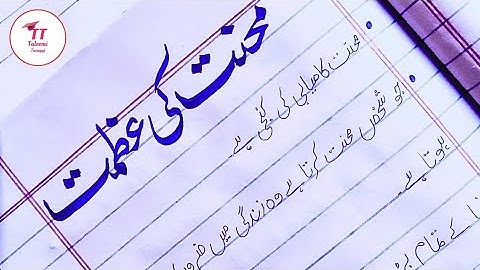 TT
Taleemi
Taraqqi
محنت کی عظمت
محنت کامیابی کی کنجی ہے۔
جو شخص محنت کرتا ہے وہ زندگی میں
ہوتا ہے۔
کے تمام